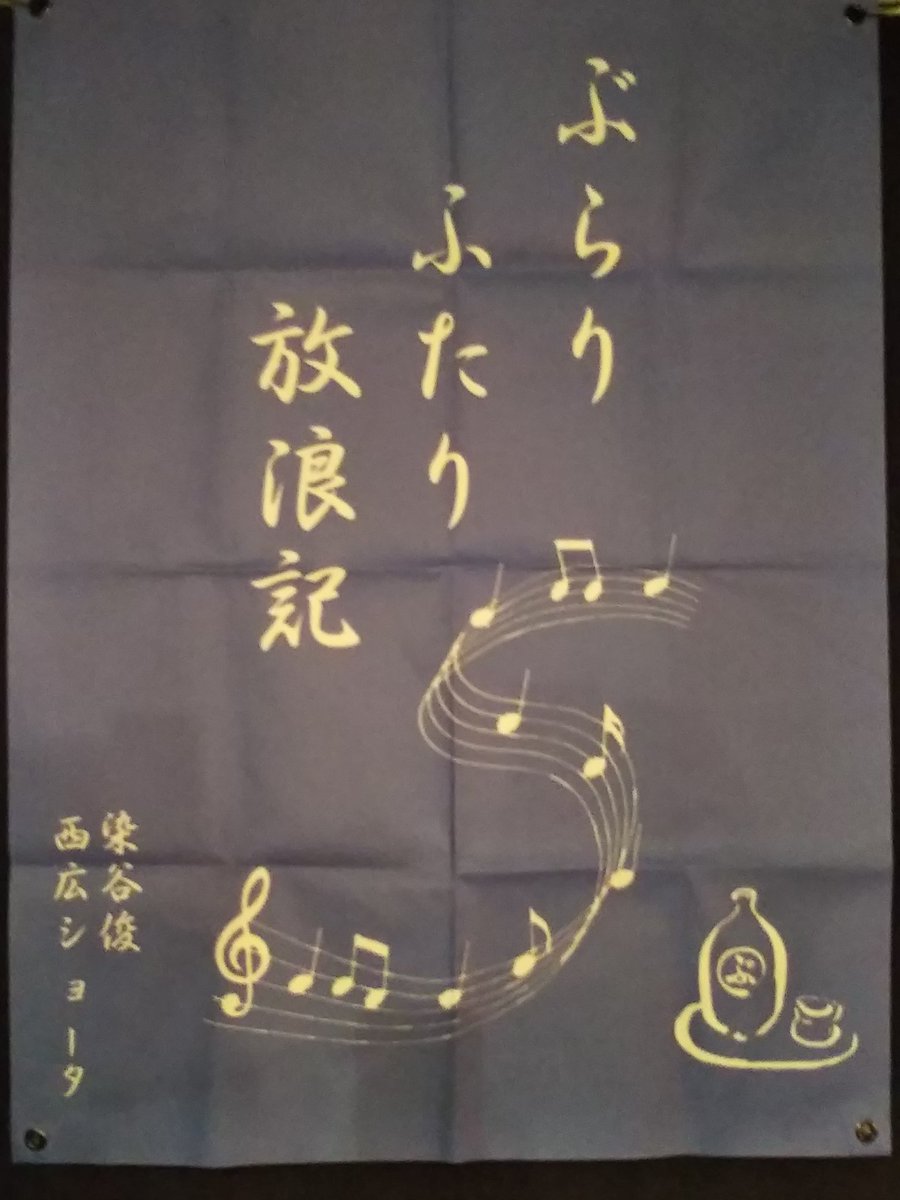 ぶらり
ふたり
放浪記
染谷俊
西広ショータ
ぶ